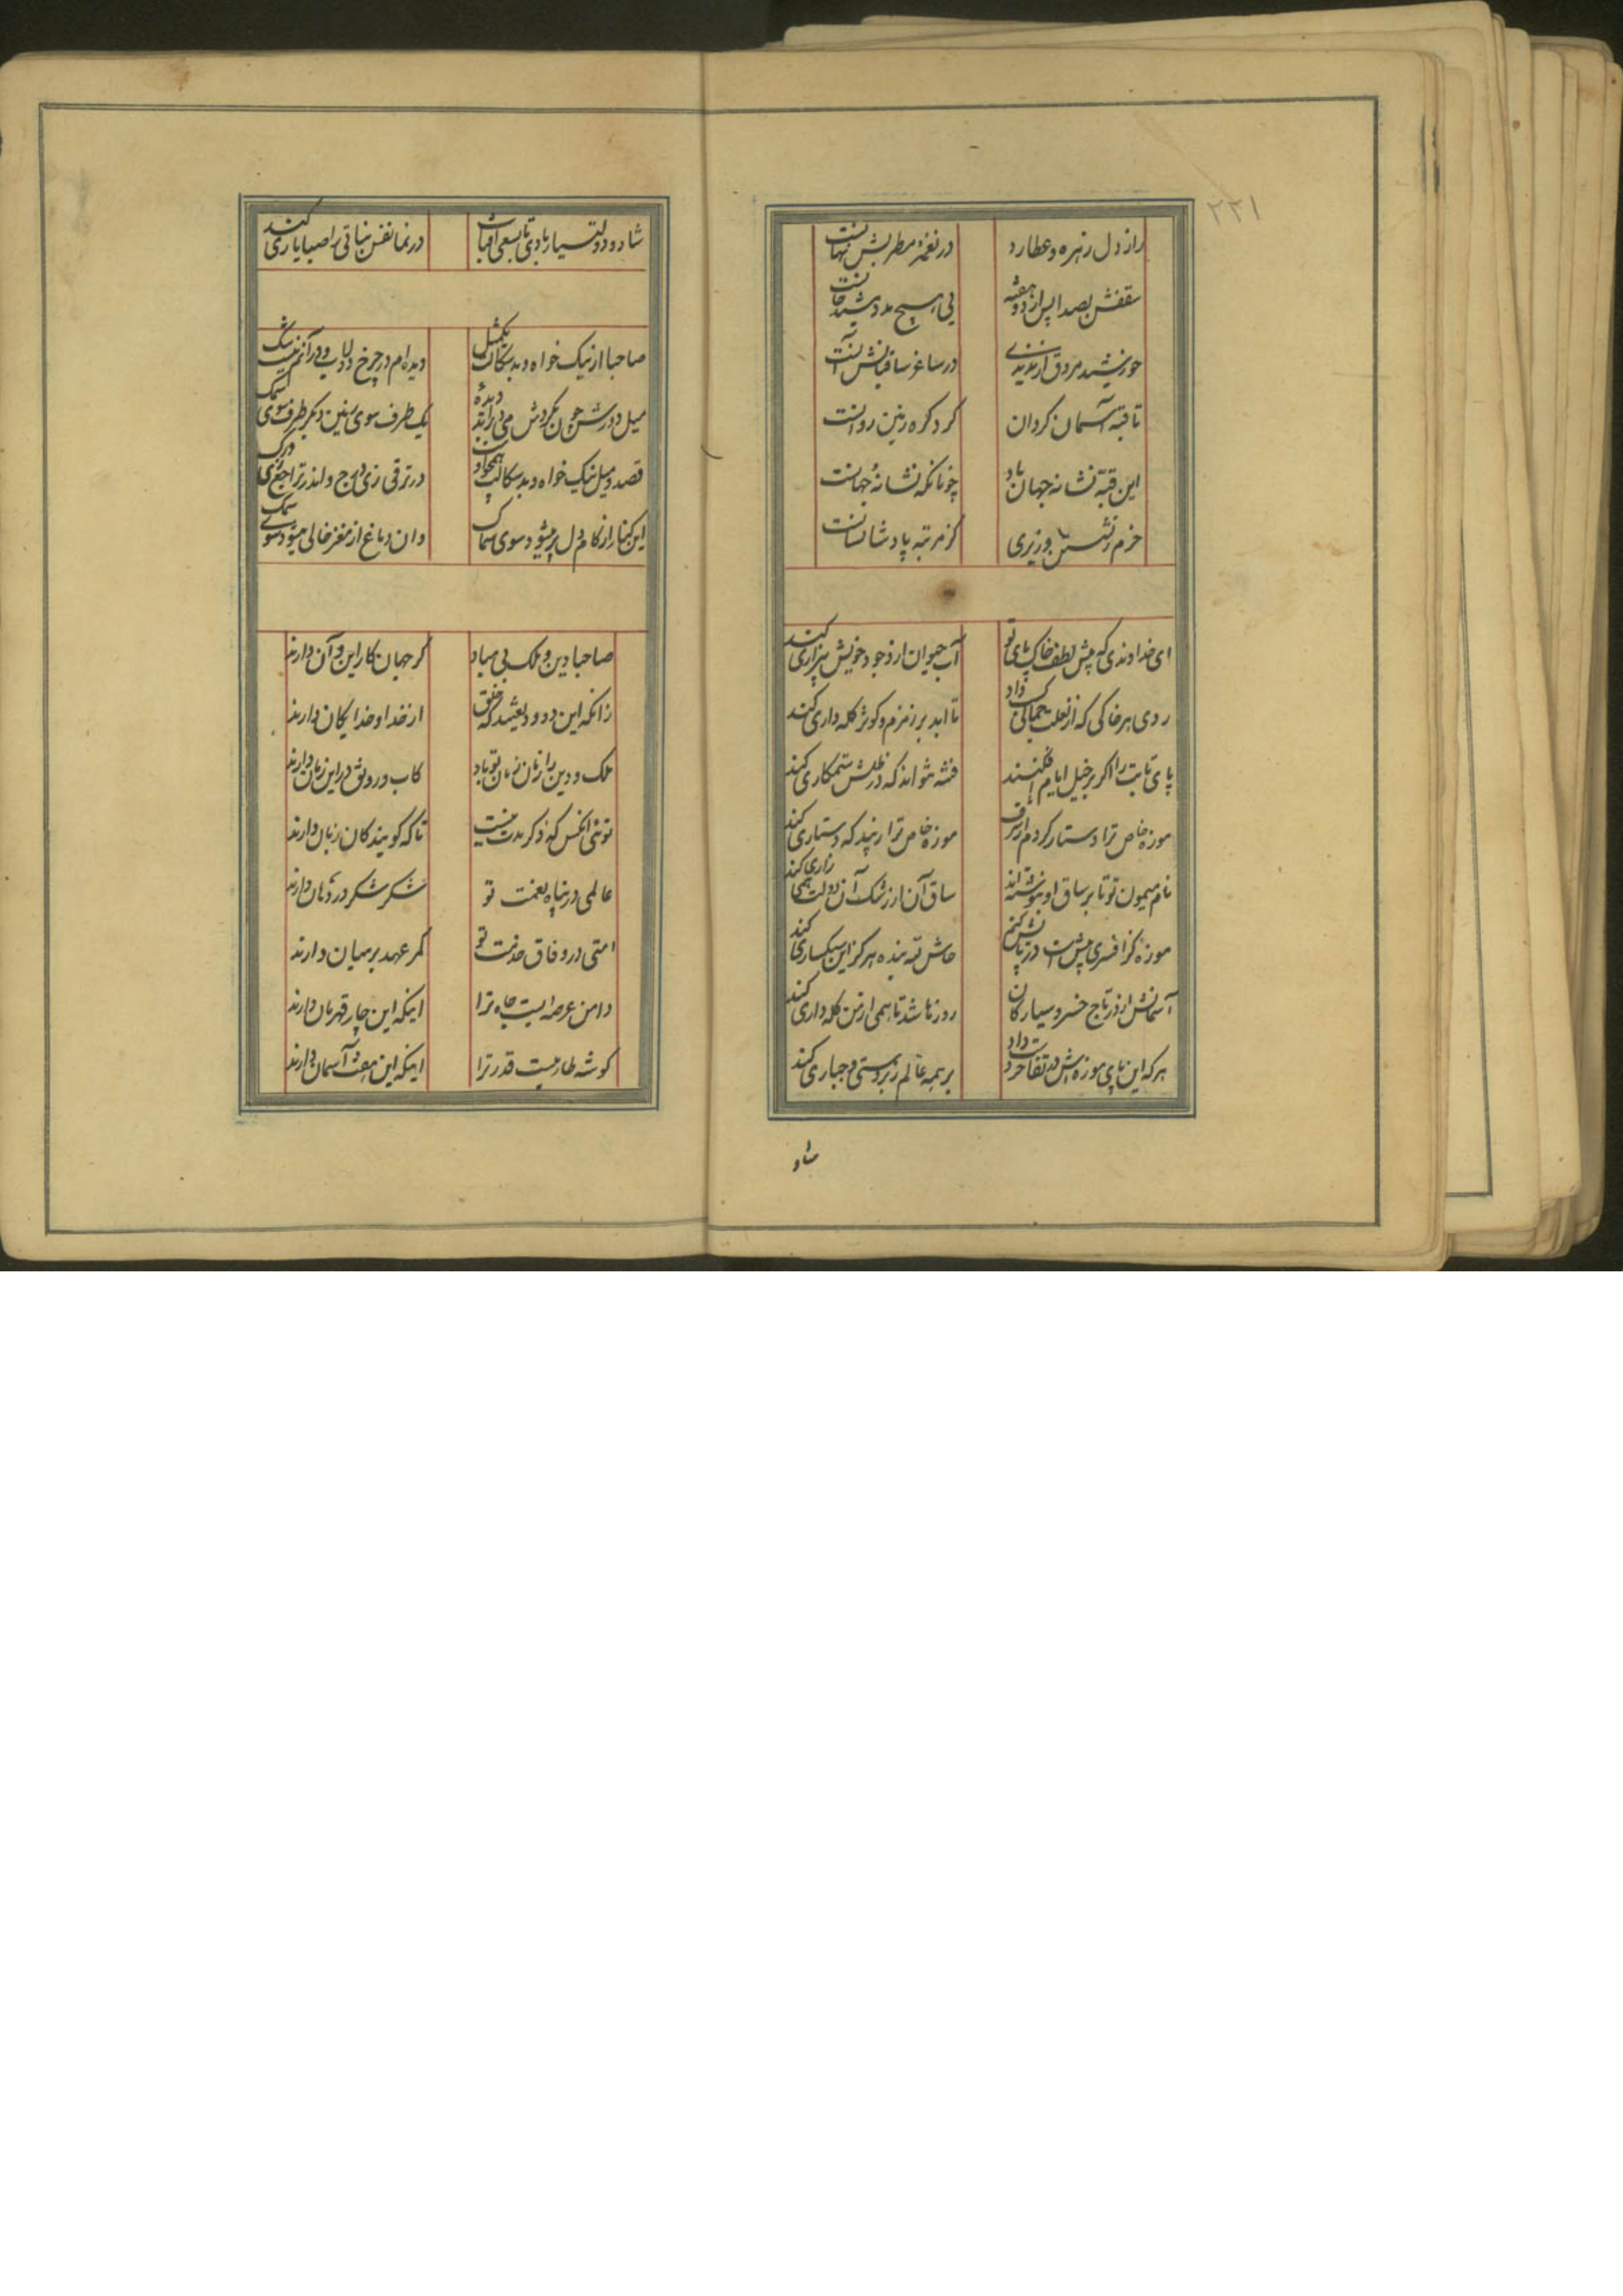 ۲۲۱
راز دل زهره و عطارد در نغمه مطربش نهانست
سقفش بصدا پس از دو هفته بی هیچ مدد نشید خوانست
خورشید مروق ار ندیدی در ساغر ساقیانش آنست
تا قبه آسمان کردان کرد کره زمین روانست
این قبه نشانه جهان باد چونانکه نشانهٔ جهانست
خرم ز نشستن وزیری کز مرتبه پادشا نشانست
ای خداوندی که پیش لطف خاک پای تو آب حیوان از وجود خویش بیزاری کند
روی هر خاکی که از نعلت جمالی کسب داد تا ابد بر زمزم و کوثر کله داری کند
پای ثابت را اکر بر خیل ایام افکنند فتنه نتواند که در ظلش ستمکاری کند
موزه خاص ترا دستار کردم از شرف موزه خاص ترا زیبد که دستاری کند
نام میمون تو تا بر ساق او بنوشته‌اند ساق آن از رشک آن دولت همی زاری کند
موزه کز افسری بیش است در پایش کنم حاش لله بنده هرکز این سبکساری کند
آسمانش از تاج خسرو سیارکان روزها شد تا همی از من کله داری کند
هر که این پای موزه‌اش دست داد بر همه عالم زبردستی و جباری کند
شاد
شاد و دولتیار بادی تا بسعی امهات در نما نفس نباتی را صبا یاری کند
صاحبا از نیک خواه و بدسکالت یکمثل دیده‌ام در چرخ دولاب و در آنم نیست شک
میل دورش چون بکردش می در اید دیدهٔ یک طرف سوی زمین دیکر طرف سوی فلک
قصد و میل نیک خواه و بدسکالت همچو آن در ترقی زی درج واندر تراجع زی درک
این کنار از کام دل پر میشود سوی سماک وان دماغ از مغز خالی میشود سوی سمک
صاحبا دین و ملک بی مباد کر جهان کار این و آن دارند
زانکه این دو ودیعتند که خلق از خدا و خدایکان دارند
ملک و دین را زمان زمان تو باد کاب و رونق در این زمان دارند
توئی انکس که ذکر مدت نیست تا که کویندکان زبان دارند
عالمی در پناه نعمت تو شکر شکر در دهان دارند
امتی در وفاق خدمت تو کمر عهد بر میان دارند
دامن عرصه ایست جاه ترا اینکه این چار قهرمان دارند
کوشه طارمیست قدر ترا اینکه این هفت آسمان دارند